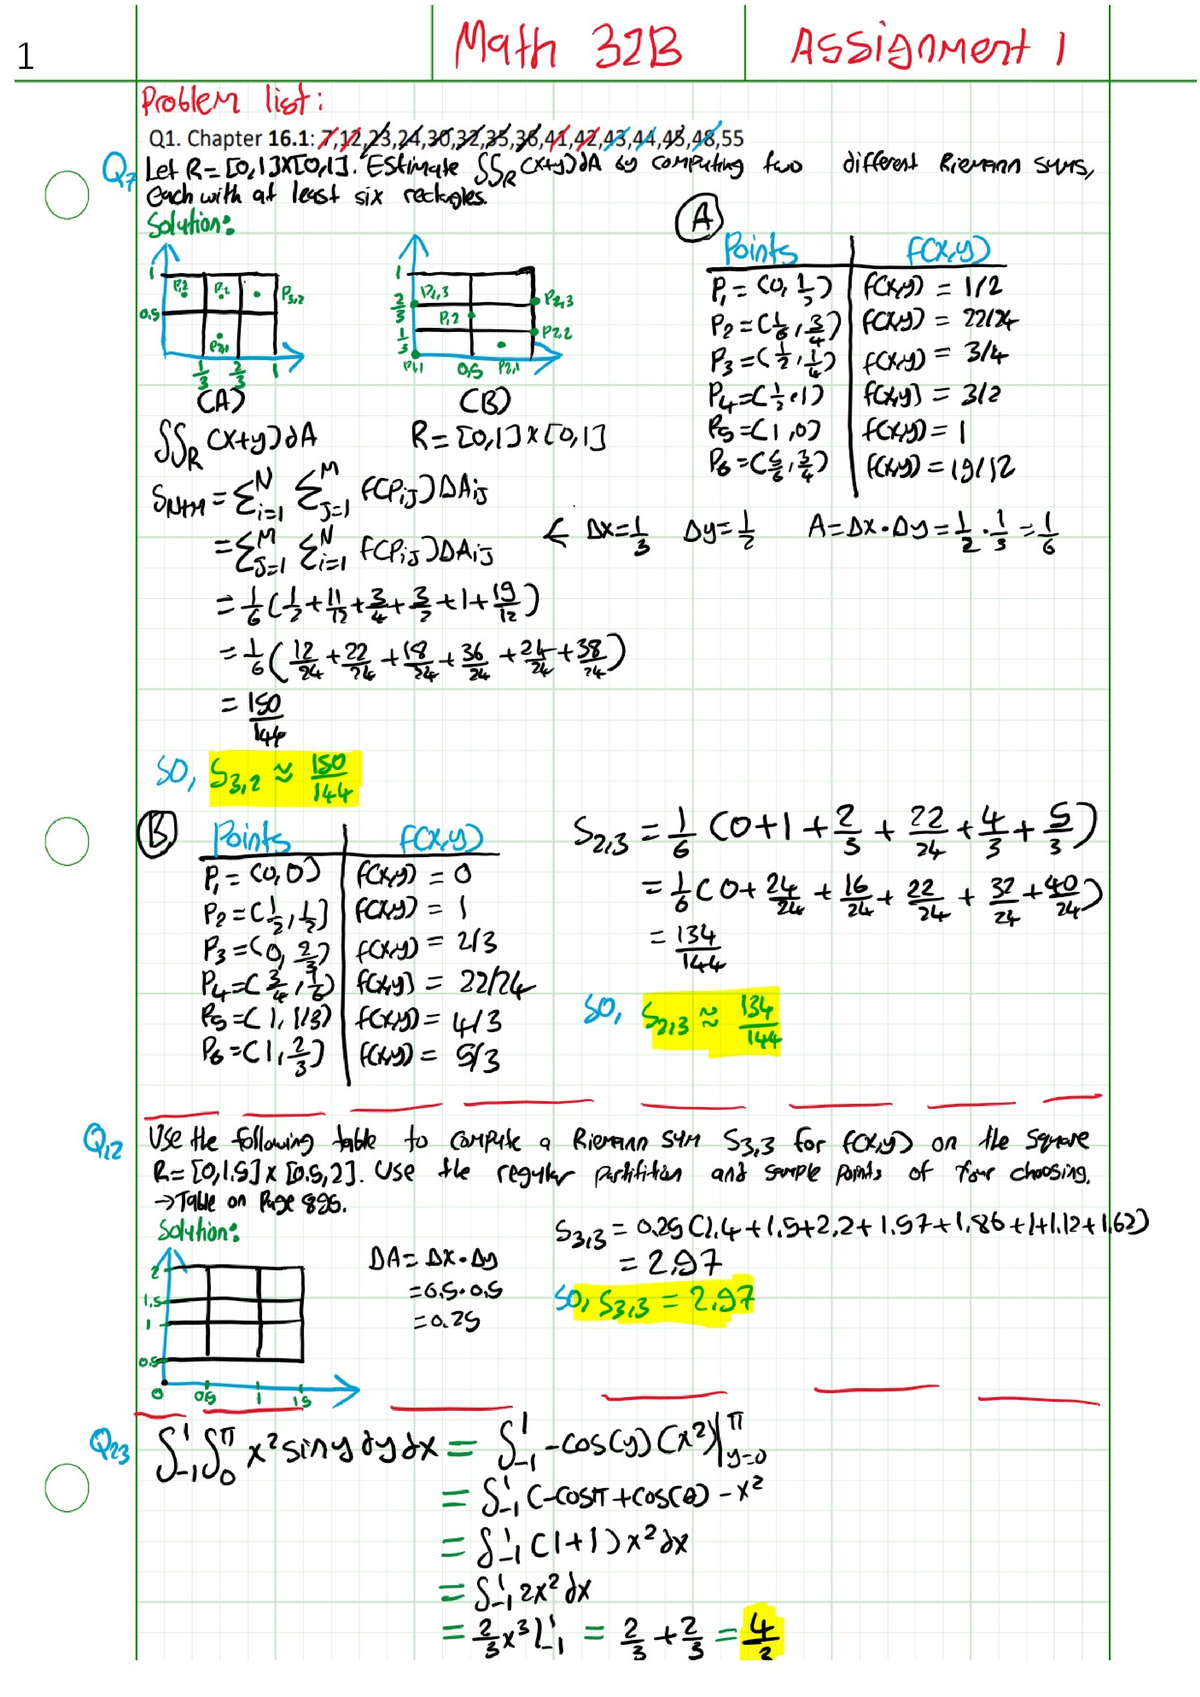 1
Math 32B Assignment 1
Problem list:
Q1. Chapter 16.1: 7,12,23,24,30,32,35,36,41,42,43,44,45,48,55
Q7 Let R = [0,1]x[0,1]. Estimate ∬R (x+y)dA by computing two different Riemann sums,
each with at least six rectangles.
Solution:
1
0.5
P1,2
P2,1
P3,2
1/3 2/3 1
(A)
1
2/3
1/3
P1,3
P1,2
P1,1
P2,3
P2,2
0.5 P2,1
(B)
∬R (x+y)dA R = [0,1]x[0,1]
A
Points f(x,y)
P1 = (0, 1/2) f(x,y) = 1/2
P2 = (1/6, 3/4) f(x,y) = 22/24
P3 = (1/2, 1/4) f(x,y) = 3/4
P4 = (1/2, 1) f(x,y) = 3/2
P5 = (1, 0) f(x,y) = 1
P6 = (5/6, 3/4) f(x,y) = 19/12
SN+M = Σ^N_{i=1} Σ^M_{j=1} f(Pij)ΔAij
= Σ^M_{j=1} Σ^N_{i=1} f(Pij)ΔAij ← Δx = 1/3 Δy = 1/2 A = Δx·Δy = 1/2 · 1/3 = 1/6
= 1/6 (1/2 + 11/12 + 3/4 + 3/2 + 1 + 19/12)
= 1/6 (12/24 + 22/24 + 18/24 + 36/24 + 24/24 + 38/24)
= 150/144
So, S3,2 ≈ 150/144
B
Points f(x,y)
P1 = (0,0) f(x,y) = 0
P2 = (1/2, 1/2) f(x,y) = 1
P3 = (0, 2/3) f(x,y) = 2/3
P4 = (3/4, 1/6) f(x,y) = 22/24
P5 = (1, 1/3) f(x,y) = 4/3
P6 = (1, 2/3) f(x,y) = 5/3
S2,3 = 1/6 (0 + 1 + 2/3 + 22/24 + 4/3 + 5/3)
= 1/6 (0 + 24/24 + 16/24 + 22/24 + 32/24 + 40/24)
= 134/144
So, S2,3 ≈ 134/144
Q12 Use the following table to compute a Riemann sum S3,3 for f(x,y) on the square
R = [0,1.5] x [0.5,2]. Use the regular partition and sample points of your choosing.
→Table on Page 895.
Solution:
2
1.5
1
0.5
0 0.5 1 1.5
ΔA = Δx·Δy
= 0.5·0.5
= 0.25
S3,3 = 0.25(1.4+1.5+2.2+1.57+1.86+1+1.12+1.62)
= 2.97
So, S3,3 = 2.97
Q23 ∫_{-1}^{1} ∫_{0}^{π} x² sin y dy dx = ∫_{-1}^{1} -cos(y)(x²)|^{π}_{y=0}
= ∫_{-1}^{1} (-cosπ + cos(0) - x²
= ∫_{-1}^{1} (1+1) x² dx
= ∫_{-1}^{1} 2x² dx
= 2/3 x³ |_{-1}^{1} = 2/3 + 2/3 = 4/3